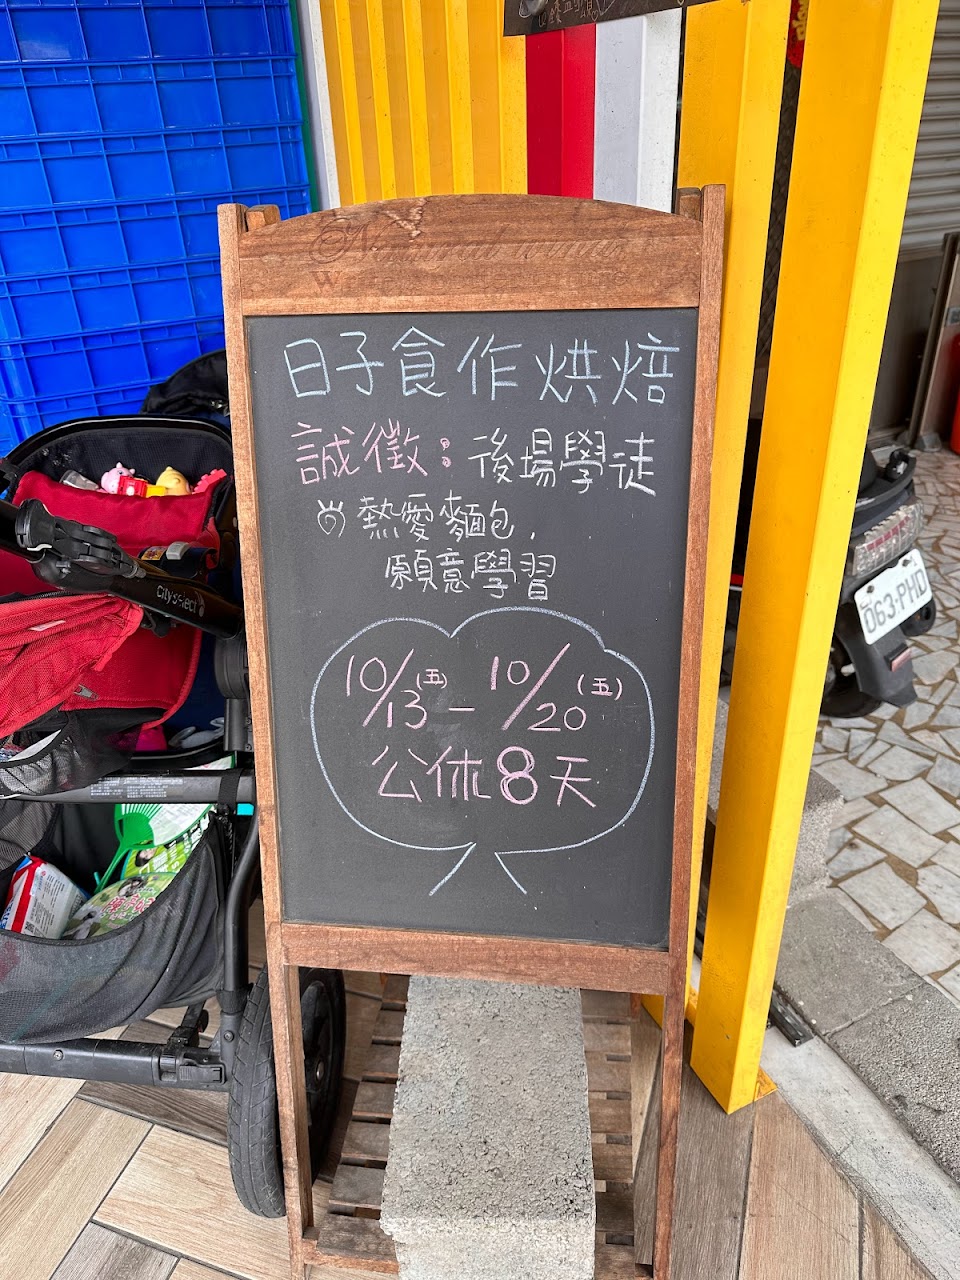 日子食作烘焙
誠徵：後場學徒
熱愛麵包,
願意學習
10/13(五) - 10/20(五)
公休8天
cityselect
063-PHD